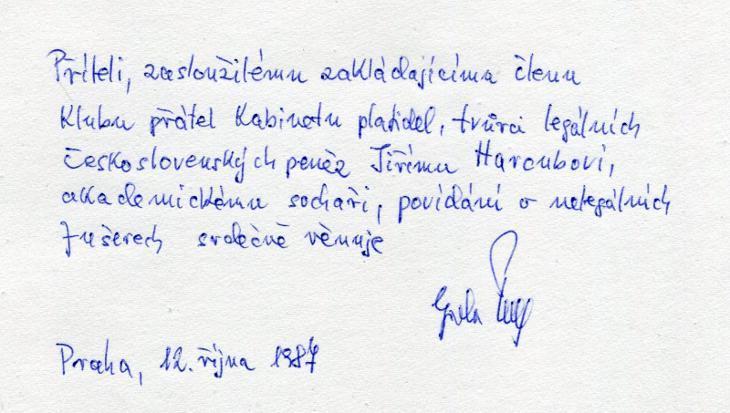 Příteli, zasloužilému zakládajícímu členu
Klubu přátel Kabinetu platidel, tvůrci legálních
československých peněz Jiřímu Harcubovi,
akademickému sochaři, povídání o nelegálních
fušerech srdečně věnuje
Praha, 12. října 1987